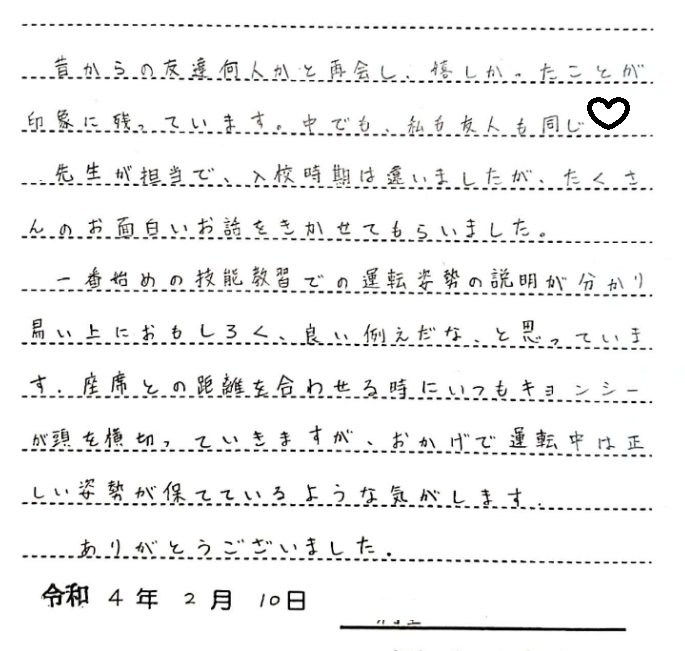 昔からの友達何人かと再会し、嬉しかったことが
印象に残っています。中でも、私も友人も同じ♡
先生が担当で、入校時期は違いましたが、たくさ
んのお面白いお話をきかせてもらいました。
一番始めの技能教習での運転姿勢の説明が分かり
易い上におもしろく、良い例えだな、と思っていま
す。座席との距離を合わせる時にいつもキョンシー
が頭を横切っていきますが、おかげで運転中は正
しい姿勢が保てているような気がします.
ありがとうございました.
令和 4 年 2 月 10 日